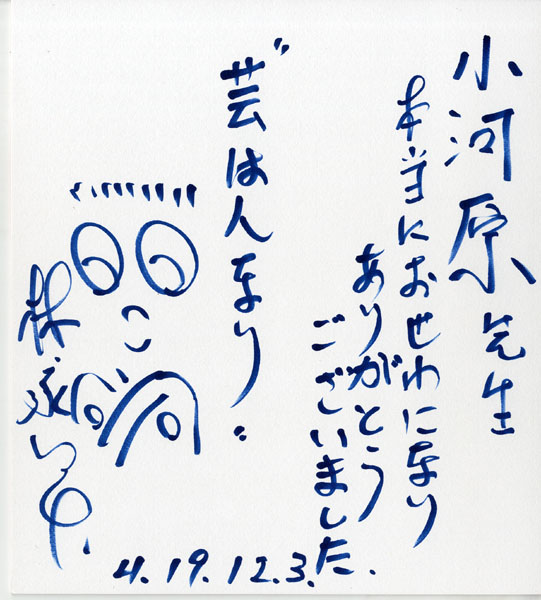 小河原先生
本当におせわになり
ありがとう
ございました.
"芸は人なり"
H.19.12.3.